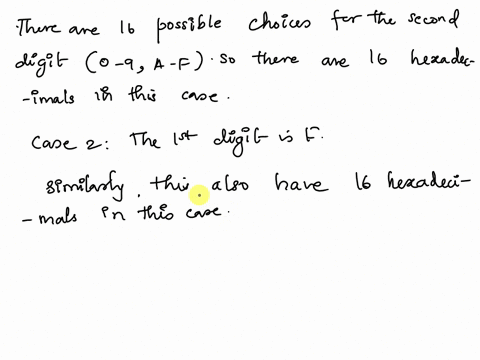 .There are 16 possible choices for the second
digit (0-9, A-F). So there are 16 hexadec-
-imals in this case.
Case 2: The 1st digit is E.
Similarly, this also have 16 hexadeci-
-mals in this case.